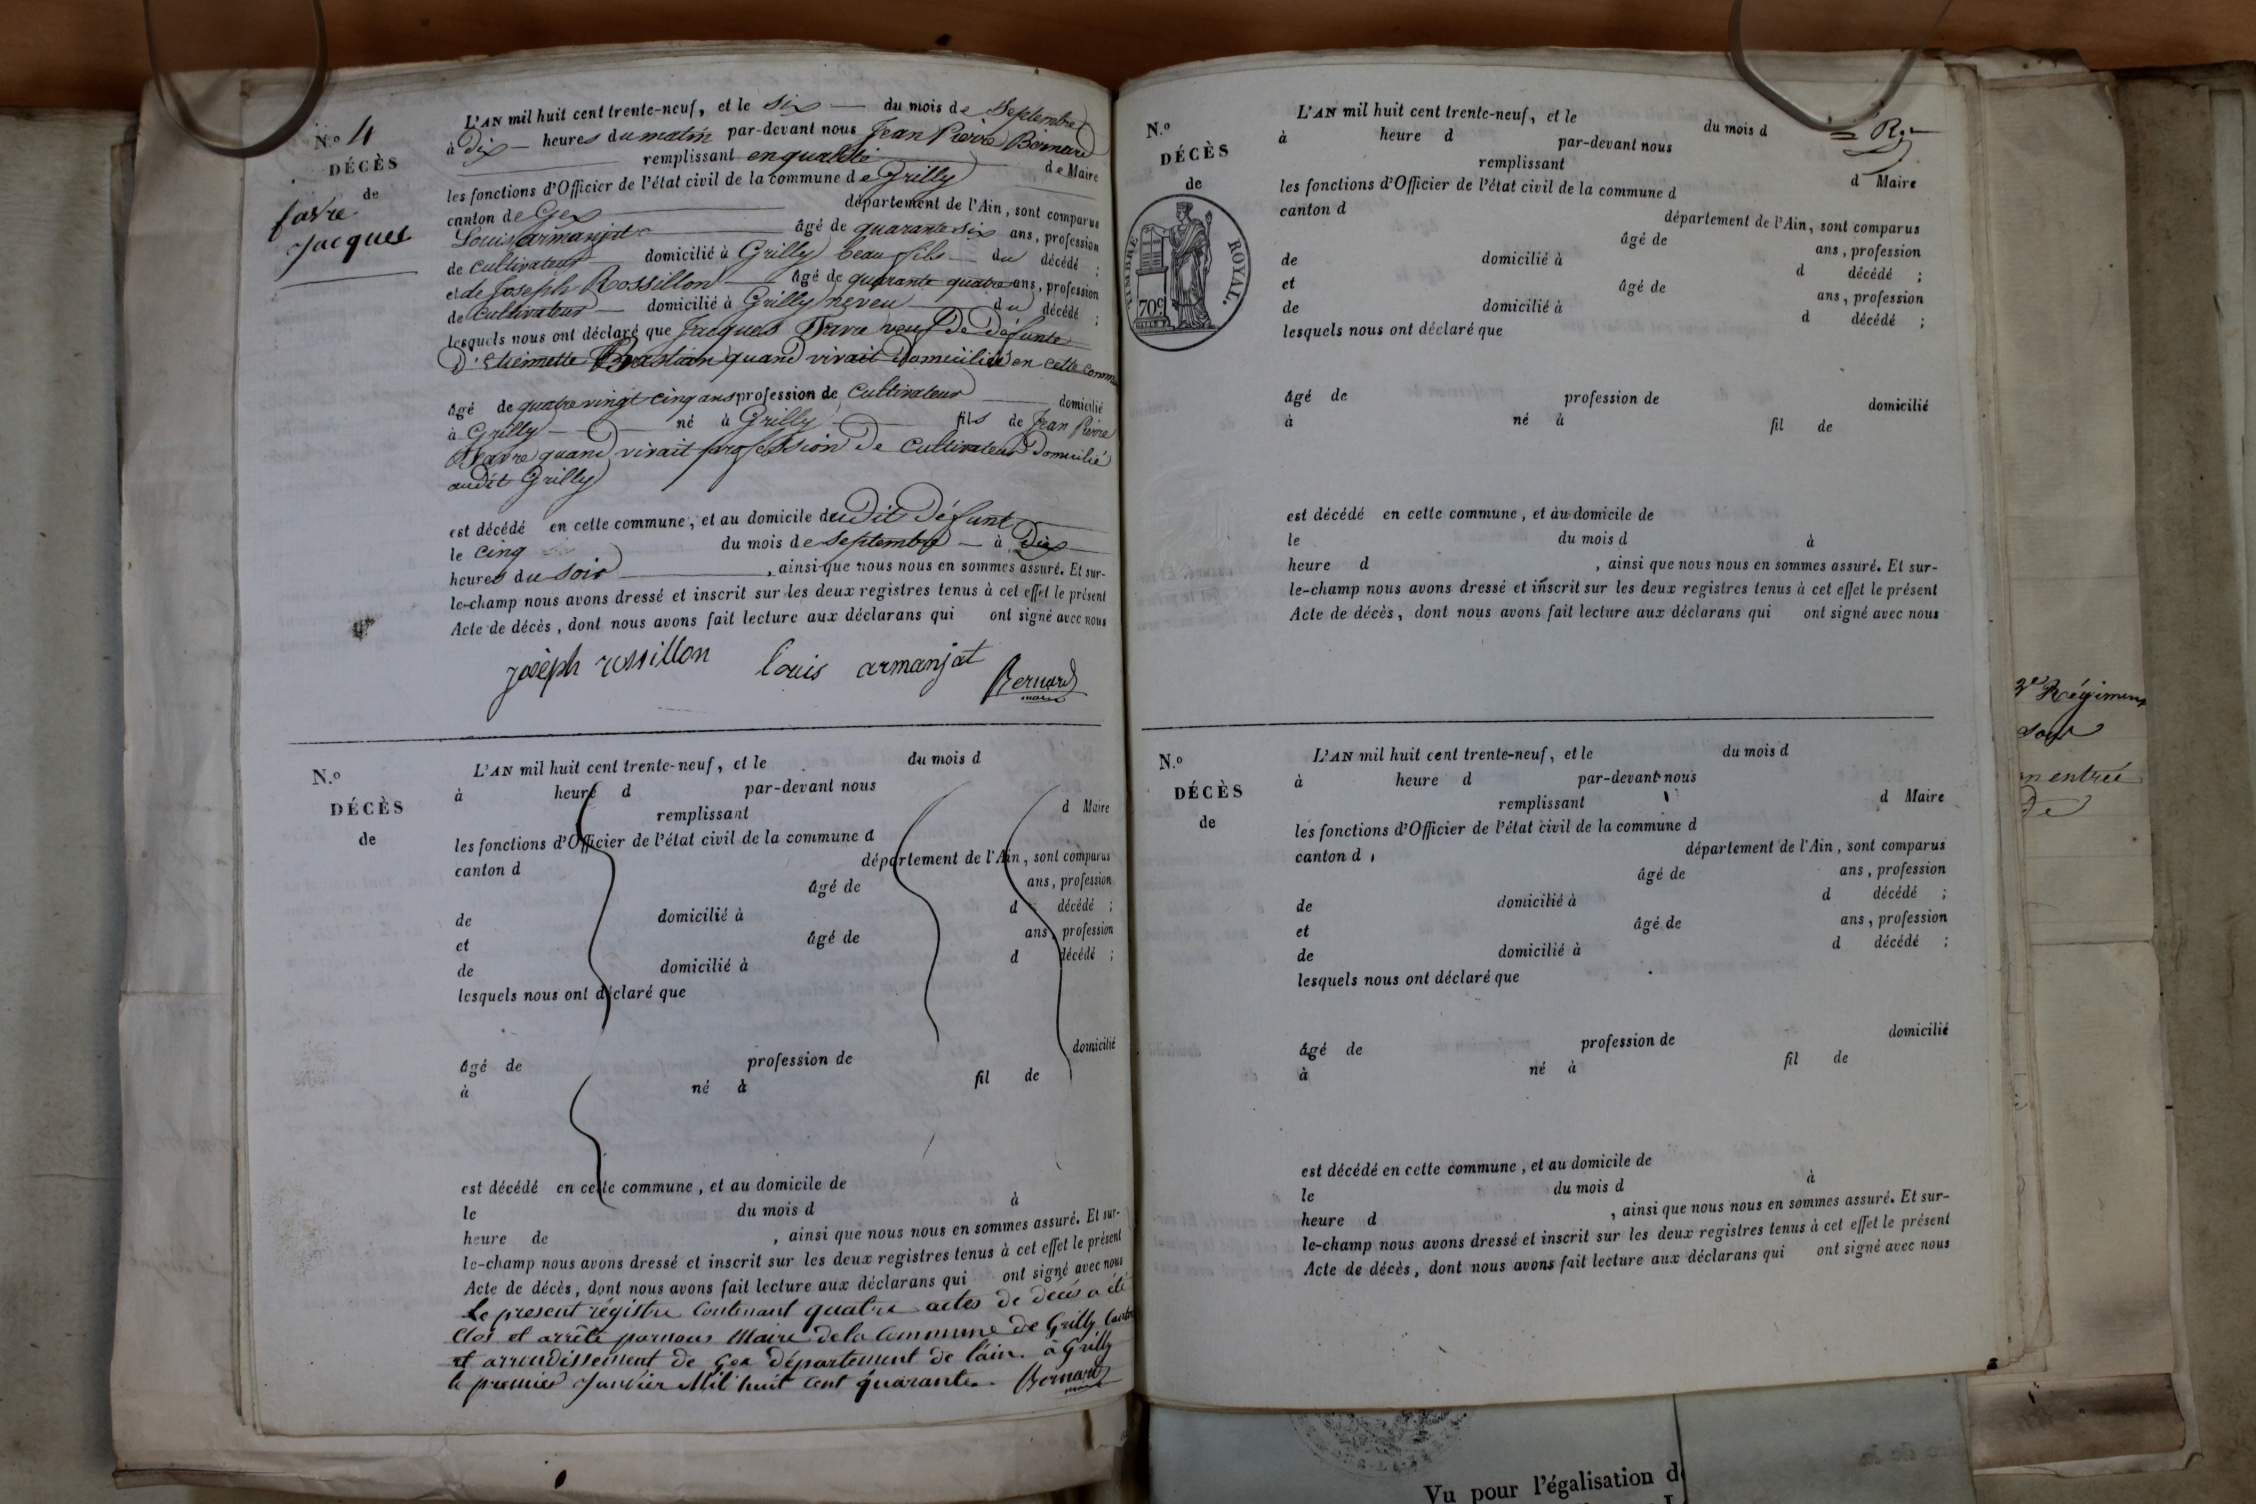 N.º 4
DÉCÈS
de
favre
Jacques
L'AN mil huit cent trente-neuf, et le six du mois de Septembre
à Dix heures du matin par-devant nous Jean Pierre Bernard
remplissant en qualité de Maire
les fonctions d'Officier de l'état civil de la commune de Grilly
canton de Gex département de l'Ain, sont comparus
Louis armanjat âgé de quarante six ans, profession
de cultivateur domicilié à Grilly beau fils du décédé ;
et de Joseph Rossillon âgé de quarante quatre ans, profession
de Cultivateur domicilié à Grilly neveu du décédé ;
lesquels nous ont déclaré que Jacques Favre veuf De Défunte
D'Etiennette quand vivait Domiciliée en cette comm
âgé de quatre vingt cinq ans profession de Cultivateur domicilié
à Grilly né à Grilly fils de Jean Pierre
Favre quand vivait profession De Cultivateur Domicilié
audit Grilly
est décédé en cette commune, et au domicile dudit Défunt
le cinq du mois de Septembre à Dix
heures du Soir , ainsi que nous nous en sommes assuré. Et sur-
le-champ nous avons dressé et inscrit sur les deux registres tenus à cet effet le présent
Acte de décès, dont nous avons fait lecture aux déclarans qui ont signé avec nous
joseph rossillon louis armanjat Bernard
maire
N.º
DÉCÈS
de
L'AN mil huit cent trente-neuf, et le du mois d
à heure d par-devant nous
remplissant d Maire
les fonctions d'Officier de l'état civil de la commune d
canton d département de l'Ain, sont comparus
âgé de ans, profession
de domicilié à d décédé ;
et âgé de ans, profession
de domicilié à d décédé ;
lesquels nous ont déclaré que
âgé de profession de domicilié
à né à fil de
est décédé en cette commune, et au domicile de
le du mois d à
heure de , ainsi que nous nous en sommes assuré. Et sur-
le-champ nous avons dressé et inscrit sur les deux registres tenus à cet effet le présent
Acte de décès, dont nous avons fait lecture aux déclarans qui ont signé avec nous
Le present registre Contenant quatre actes de decés a été
Clos et arrêté par nous Maire de la Commune de Grilly Canton
et arrondissement de Gex département de l'ain. à Grilly
le premier Janvier Mil huit Cent quarante. Bernard
maire
N.º
DÉCÈS
de
TIMBRE ROYAL.
70 c.
L'AN mil huit cent trente-neuf, et le du mois d
à heure d par-devant nous
remplissant d Maire
les fonctions d'Officier de l'état civil de la commune d
canton d département de l'Ain, sont comparus
âgé de ans, profession
de domicilié à d décédé ;
et âgé de ans, profession
de domicilié à d décédé ;
lesquels nous ont déclaré que
âgé de profession de domicilié
à né à fil de
est décédé en cette commune, et au domicile de
le du mois d à
heure d , ainsi que nous nous en sommes assuré. Et sur-
le-champ nous avons dressé et inscrit sur les deux registres tenus à cet effet le présent
Acte de décès, dont nous avons fait lecture aux déclarans qui ont signé avec nous
N.º
DÉCÈS
de
L'AN mil huit cent trente-neuf, et le du mois d
à heure d par-devant nous
remplissant d Maire
les fonctions d'Officier de l'état civil de la commune d
canton d département de l'Ain, sont comparus
âgé de ans, profession
de domicilié à d décédé ;
et âgé de ans, profession
de domicilié à d décédé ;
lesquels nous ont déclaré que
âgé de profession de domicilié
à né à fil de
est décédé en cette commune, et au domicile de
le du mois d à
heure d , ainsi que nous nous en sommes assuré. Et sur-
le-champ nous avons dressé et inscrit sur les deux registres tenus à cet effet le présent
Acte de décès, dont nous avons fait lecture aux déclarans qui ont signé avec nous
Régimen
entrée
de
Vu pour l'égalisation d